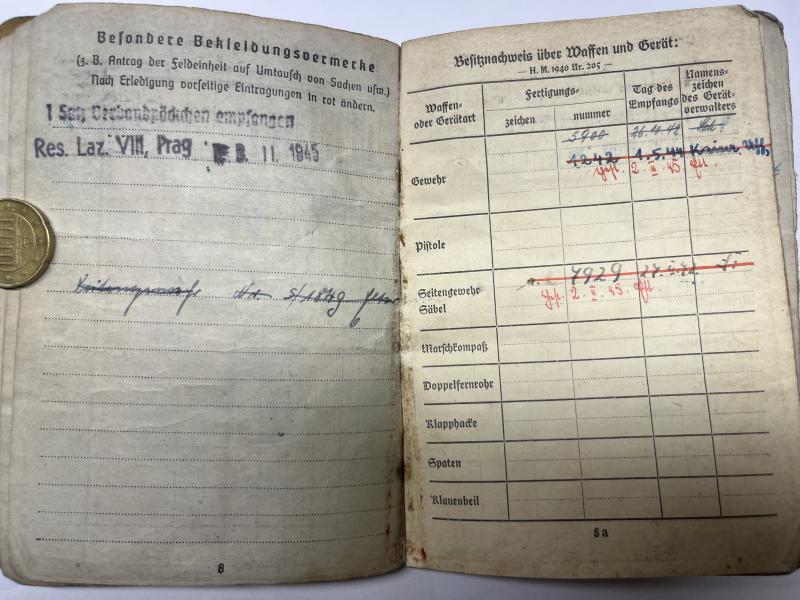 Besondere Bekleidungsvermerke
(z. B. Antrag der Feldeinheit auf Umtausch von Sachen usw.)
Nach Erledigung vorseitige Eintragungen in rot ändern.
1 Satz Verbandpäckchen empfangen
Res. Laz. VIII, Prag 3. 11. 1945
Nr. s/1849
8
Besitznachweis über Waffen und Gerät:
— H. M. 1940 Nr. 205 —
Waffen- oder Gerätart
Fertigungs-
zeichen
nummer
Tag des Empfangs
Namens- zeichen des Gerät- verwalters
5900
Gewehr
1242 1.5.44
2. II. 45
Pistole
Seitengewehr
Säbel
7929
2. II. 45.
Marschkompaß
Doppelfernrohr
Klapphacke
Spaten
Klauenbeil
8a